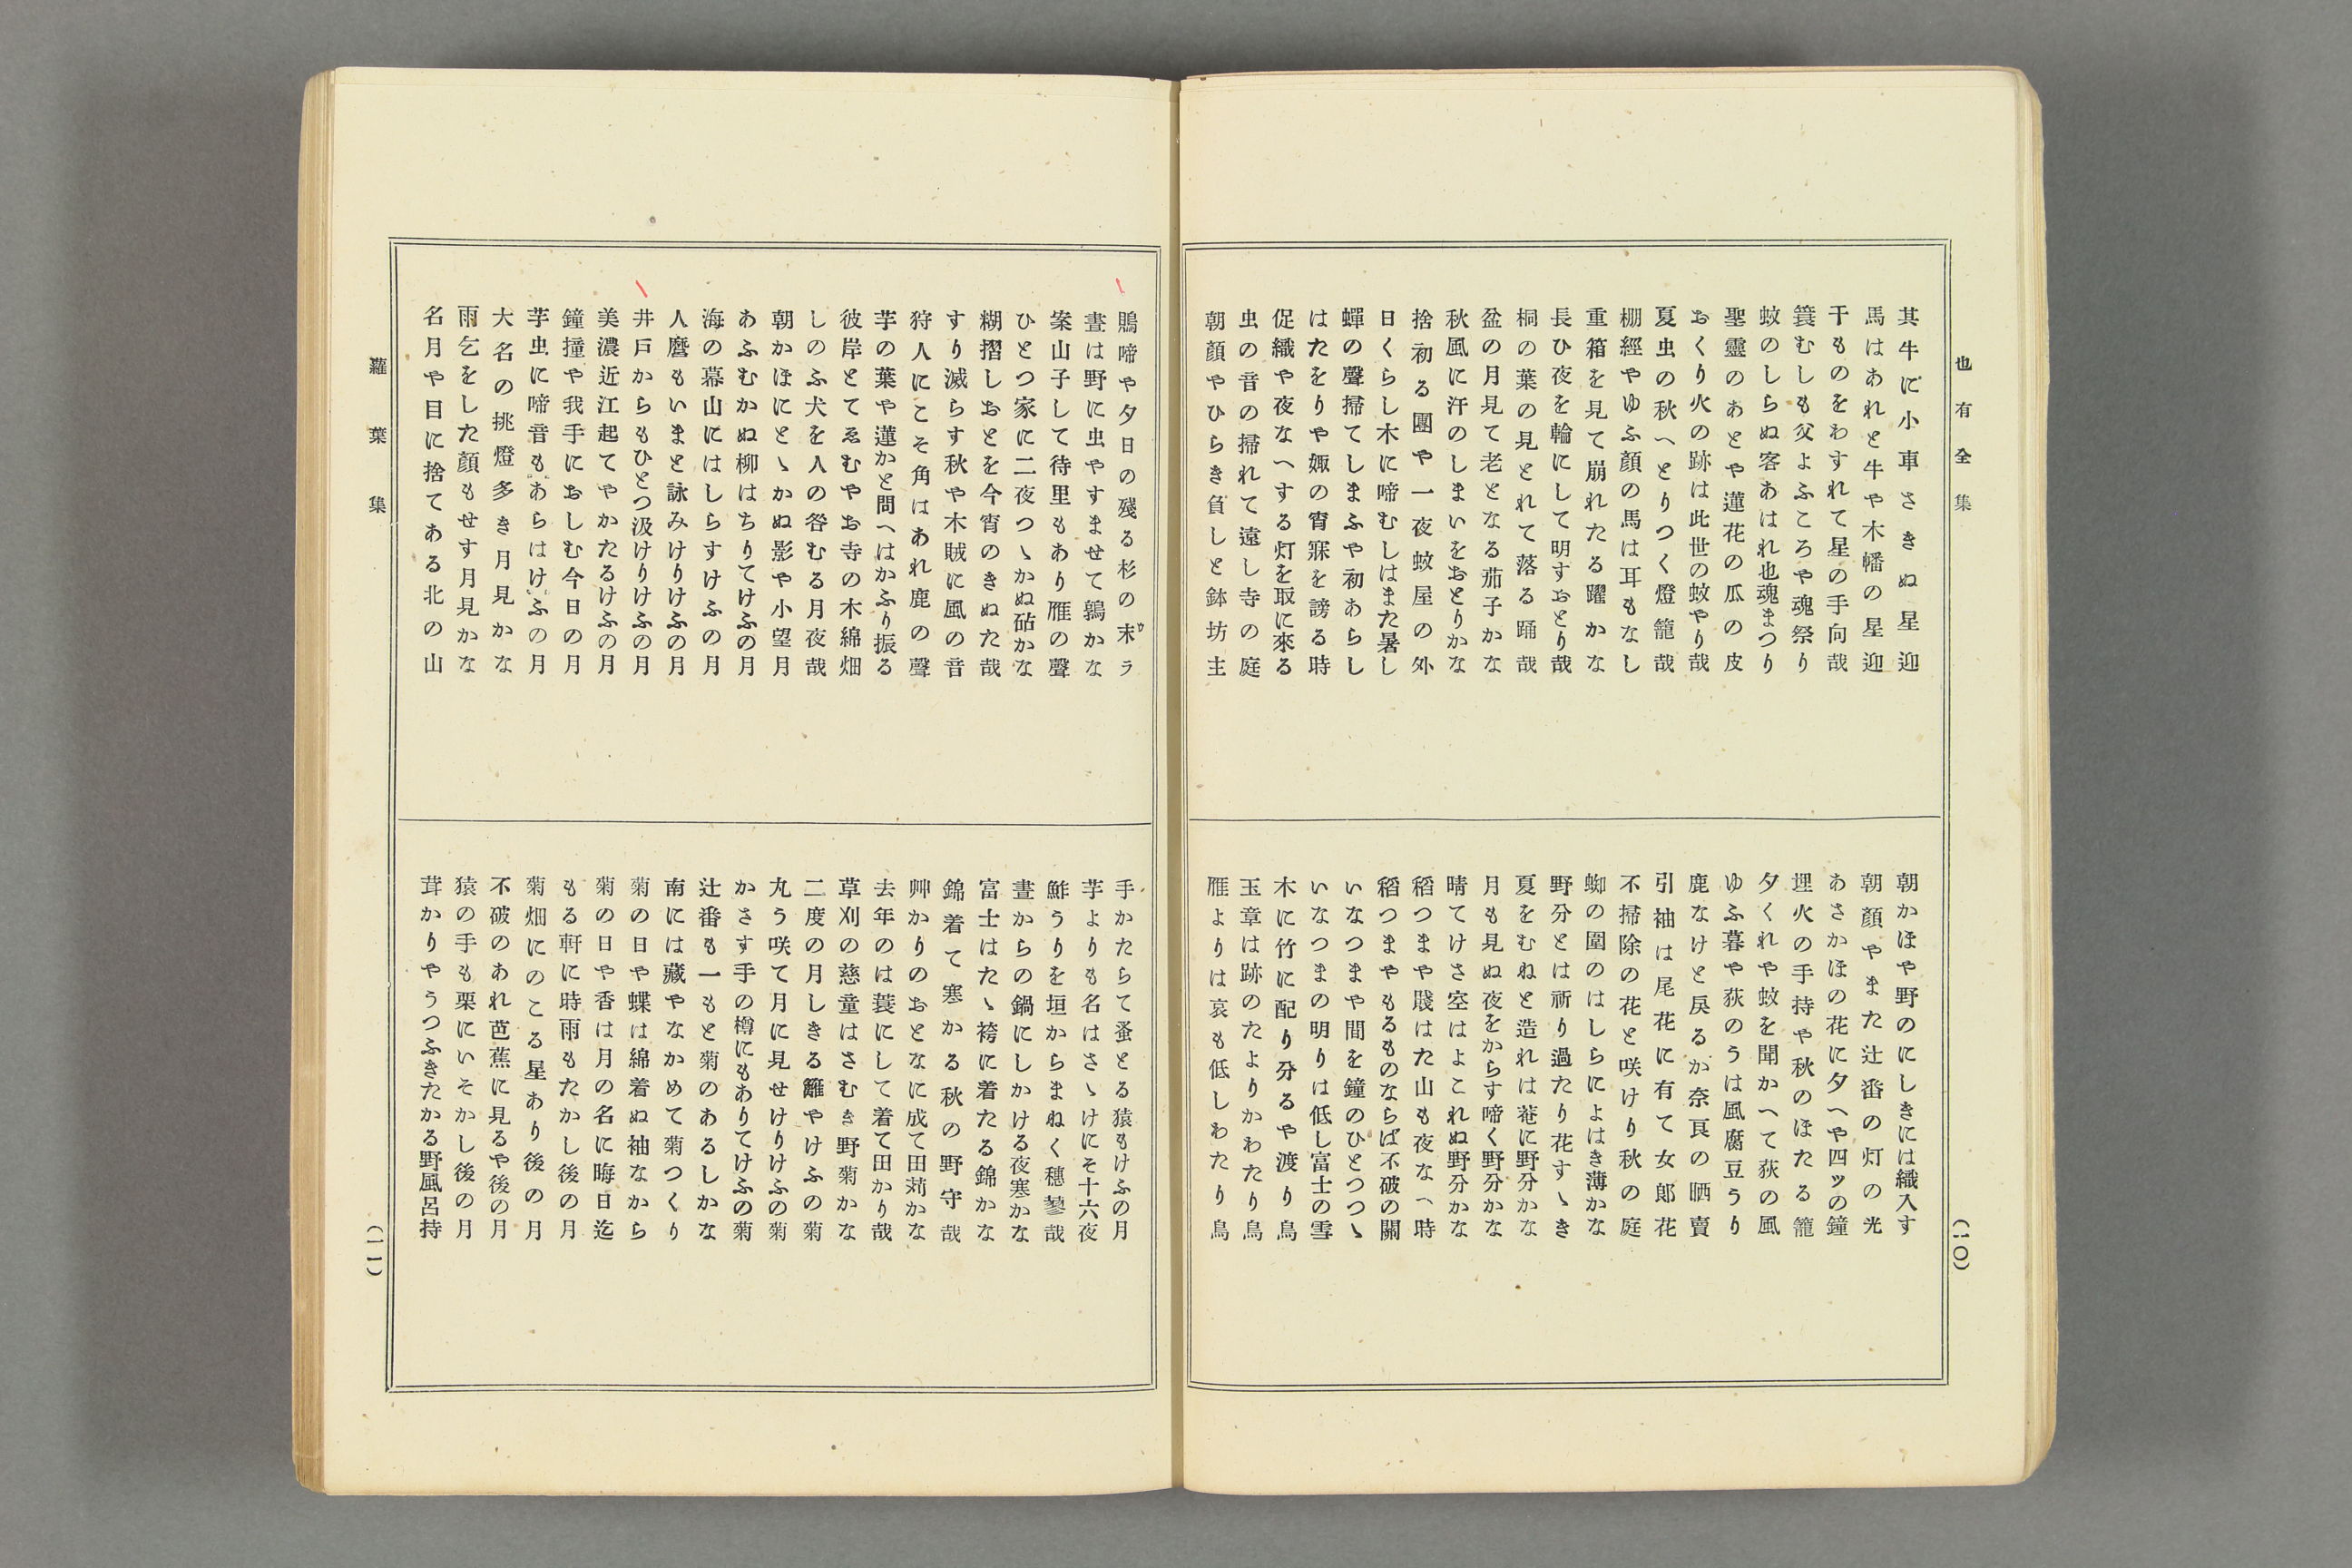 也有全集
(一〇)
其牛に小車さきぬ星迎
馬はあれと牛や木幡の星迎
干ものをわすれて星の手向哉
簔むしも父よふころや魂祭り
蚊のしらぬ客あはれ也魂まつり
聖靈のあとや蓮花の瓜の皮
おくり火の跡は此世の蚊やり哉
夏虫の秋へとりつく燈籠哉
棚經やゆふ顏の馬は耳もなし
重箱を見て崩れたる躍かな
長ひ夜を輪にして明すおとり哉
桐の葉の見とれて落る踊哉
盆の月見て老となる茄子かな
秋風に汗のしまいをおとりかな
捨初る團や一夜蚊屋の外
日くらし木に啼むしはまた暑し
蟬の聲掃てしまふや初あらし
はたをりや娵の宵寐を謗る時
促織や夜なへする灯を取に來る
虫の音の掃れて遠し寺の庭
朝顏やひらき負しと鉢坊主
朝かほや野のにしきには織入す
朝顏やまた辻番の灯の光
あさかほの花に夕へや四ッの鐘
埋火の手持や秋のほたる籠
夕くれや蚊を聞かへて荻の風
ゆふ暮や荻のうは風腐豆うり
鹿なけと戾るか奈良の晒賣
引袖は尾花に有て女郞花
不掃除の花と咲けり秋の庭
蜘の圍のはしらによはき薄かな
野分とは祈り過たり花すゝき
夏をむねと造れは菴に野分かな
月も見ぬ夜をからす啼く野分かな
晴てけさ空はよこれぬ野分かな
稻つまや賤はた山も夜なへ時
稻つまやもるものならば不破の關
いなつまや間を鐘のひとつつゝ
いなつまの明りは低し富士の雪
木に竹に配り分るや渡り鳥
玉章は跡のたよりかわたり鳥
雁よりは哀も低しわたり鳥
鵙啼や夕日の殘る杉の末ラ
晝は野に虫やすませて鶉かな
案山子して待里もあり雁の聲
ひとつ家に二夜つゝかぬ砧かな
糊摺しおとを今宵のきぬた哉
すり減らす秋や木賊に風の音
狩人にこそ角はあれ鹿の聲
芋の葉や蓮かと問へはかふり振る
彼岸とてゑむやお寺の木綿畑
しのふ犬を人の咎むる月夜哉
朝かほにとゝかぬ影や小望月
あふむかぬ柳はちりてけふの月
海の幕山にはしらすけふの月
人麿もいまと詠みけりけふの月
井戸からもひとつ汲けりけふの月
美濃近江起てやかたるけふの月
鐘撞や我手におしむ今日の月
芋虫に啼音もあらはけふの月
大名の挑燈多き月見かな
雨乞をした顏もせす月見かな
名月や目に捨てある北の山
手かたらて蚤とる猿もけふの月
芋よりも名はさゝけにそ十六夜
鮓うりを垣からまねく穗蓼哉
晝からの鍋にしかける夜寒かな
富士はたゝ袴に着たる錦かな
錦着て寒かる秋の野守哉
艸かりのおとなに成て田苅かな
去年のは蓑にして着て田かり哉
草刈の慈童はさむき野菊かな
二度の月しきる籬やけふの菊
丸う咲て月に見せけりけふの菊
かさす手の樽にもありてけふの菊
辻番も一もと菊のあるしかな
南には藏やなかめて菊つくり
菊の日や蝶は綿着ぬ袖なから
菊の日や香は月の名に晦日迄
もる軒に時雨もたかし後の月
菊畑にのこる星あり後の月
不破のあれ芭蕉に見るや後の月
猿の手も栗にいそかし後の月
茸かりやうつふきたかる野風呂持
蘿葉集
(一一)